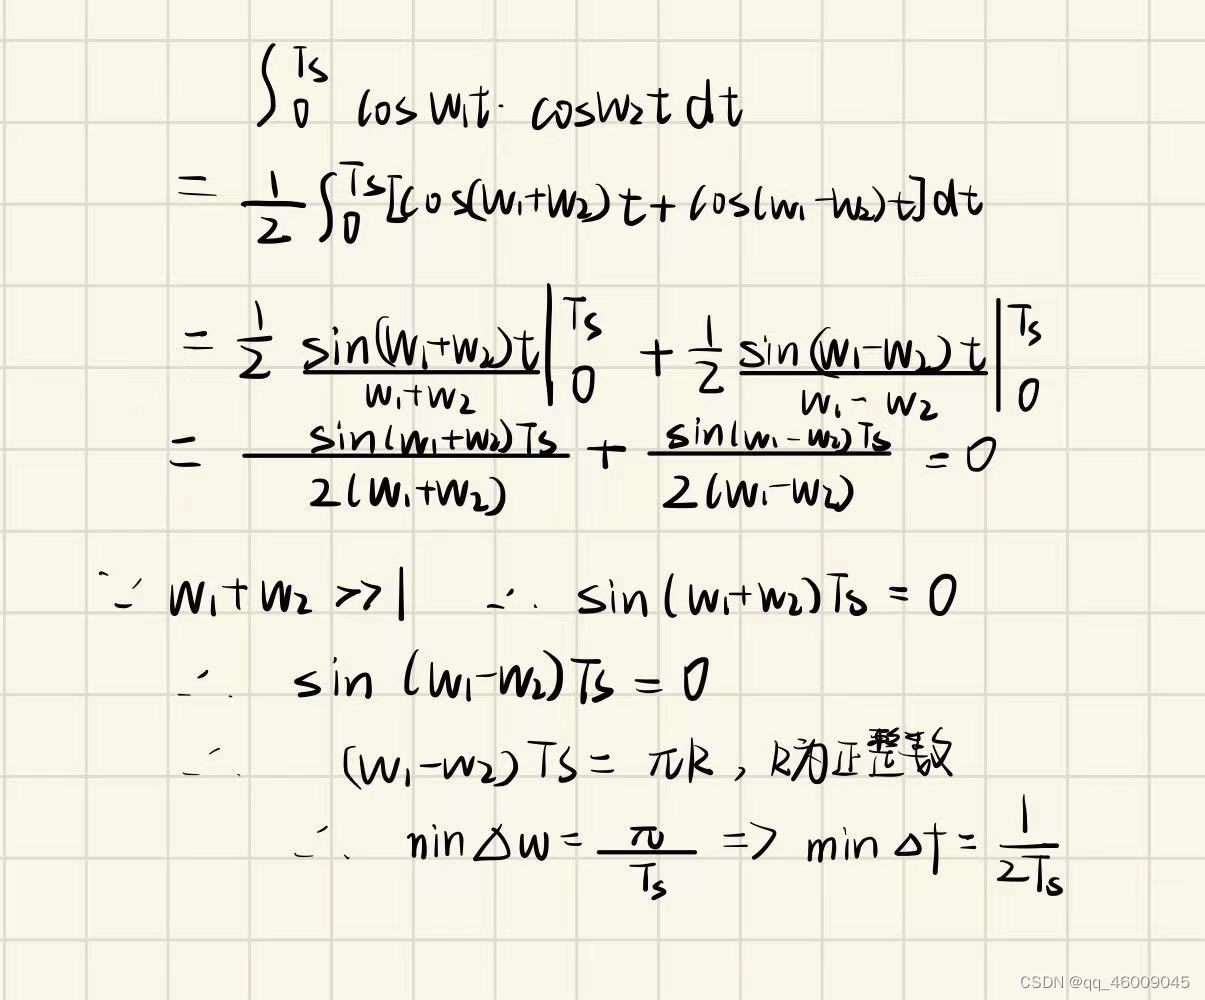 ∫₀^Ts cos w₁t · cos w₂t dt
= 1/2 ∫₀^Ts [cos(w₁+w₂)t + cos(w₁-w₂)t] dt
= 1/2 sin(w₁+w₂)t/(w₁+w₂) |₀^Ts + 1/2 sin(w₁-w₂)t/(w₁-w₂) |₀^Ts
= sin(w₁+w₂)Ts/2(w₁+w₂) + sin(w₁-w₂)Ts/2(w₁-w₂) = 0
∵ w₁+w₂ >> 1 ∴ sin(w₁+w₂)Ts = 0
∴ sin(w₁-w₂)Ts = 0
∴ (w₁-w₂)Ts = πk, k为正整数
∴ min Δw = π/Ts => min Δf = 1/2Ts
CSDN @qq_46009045